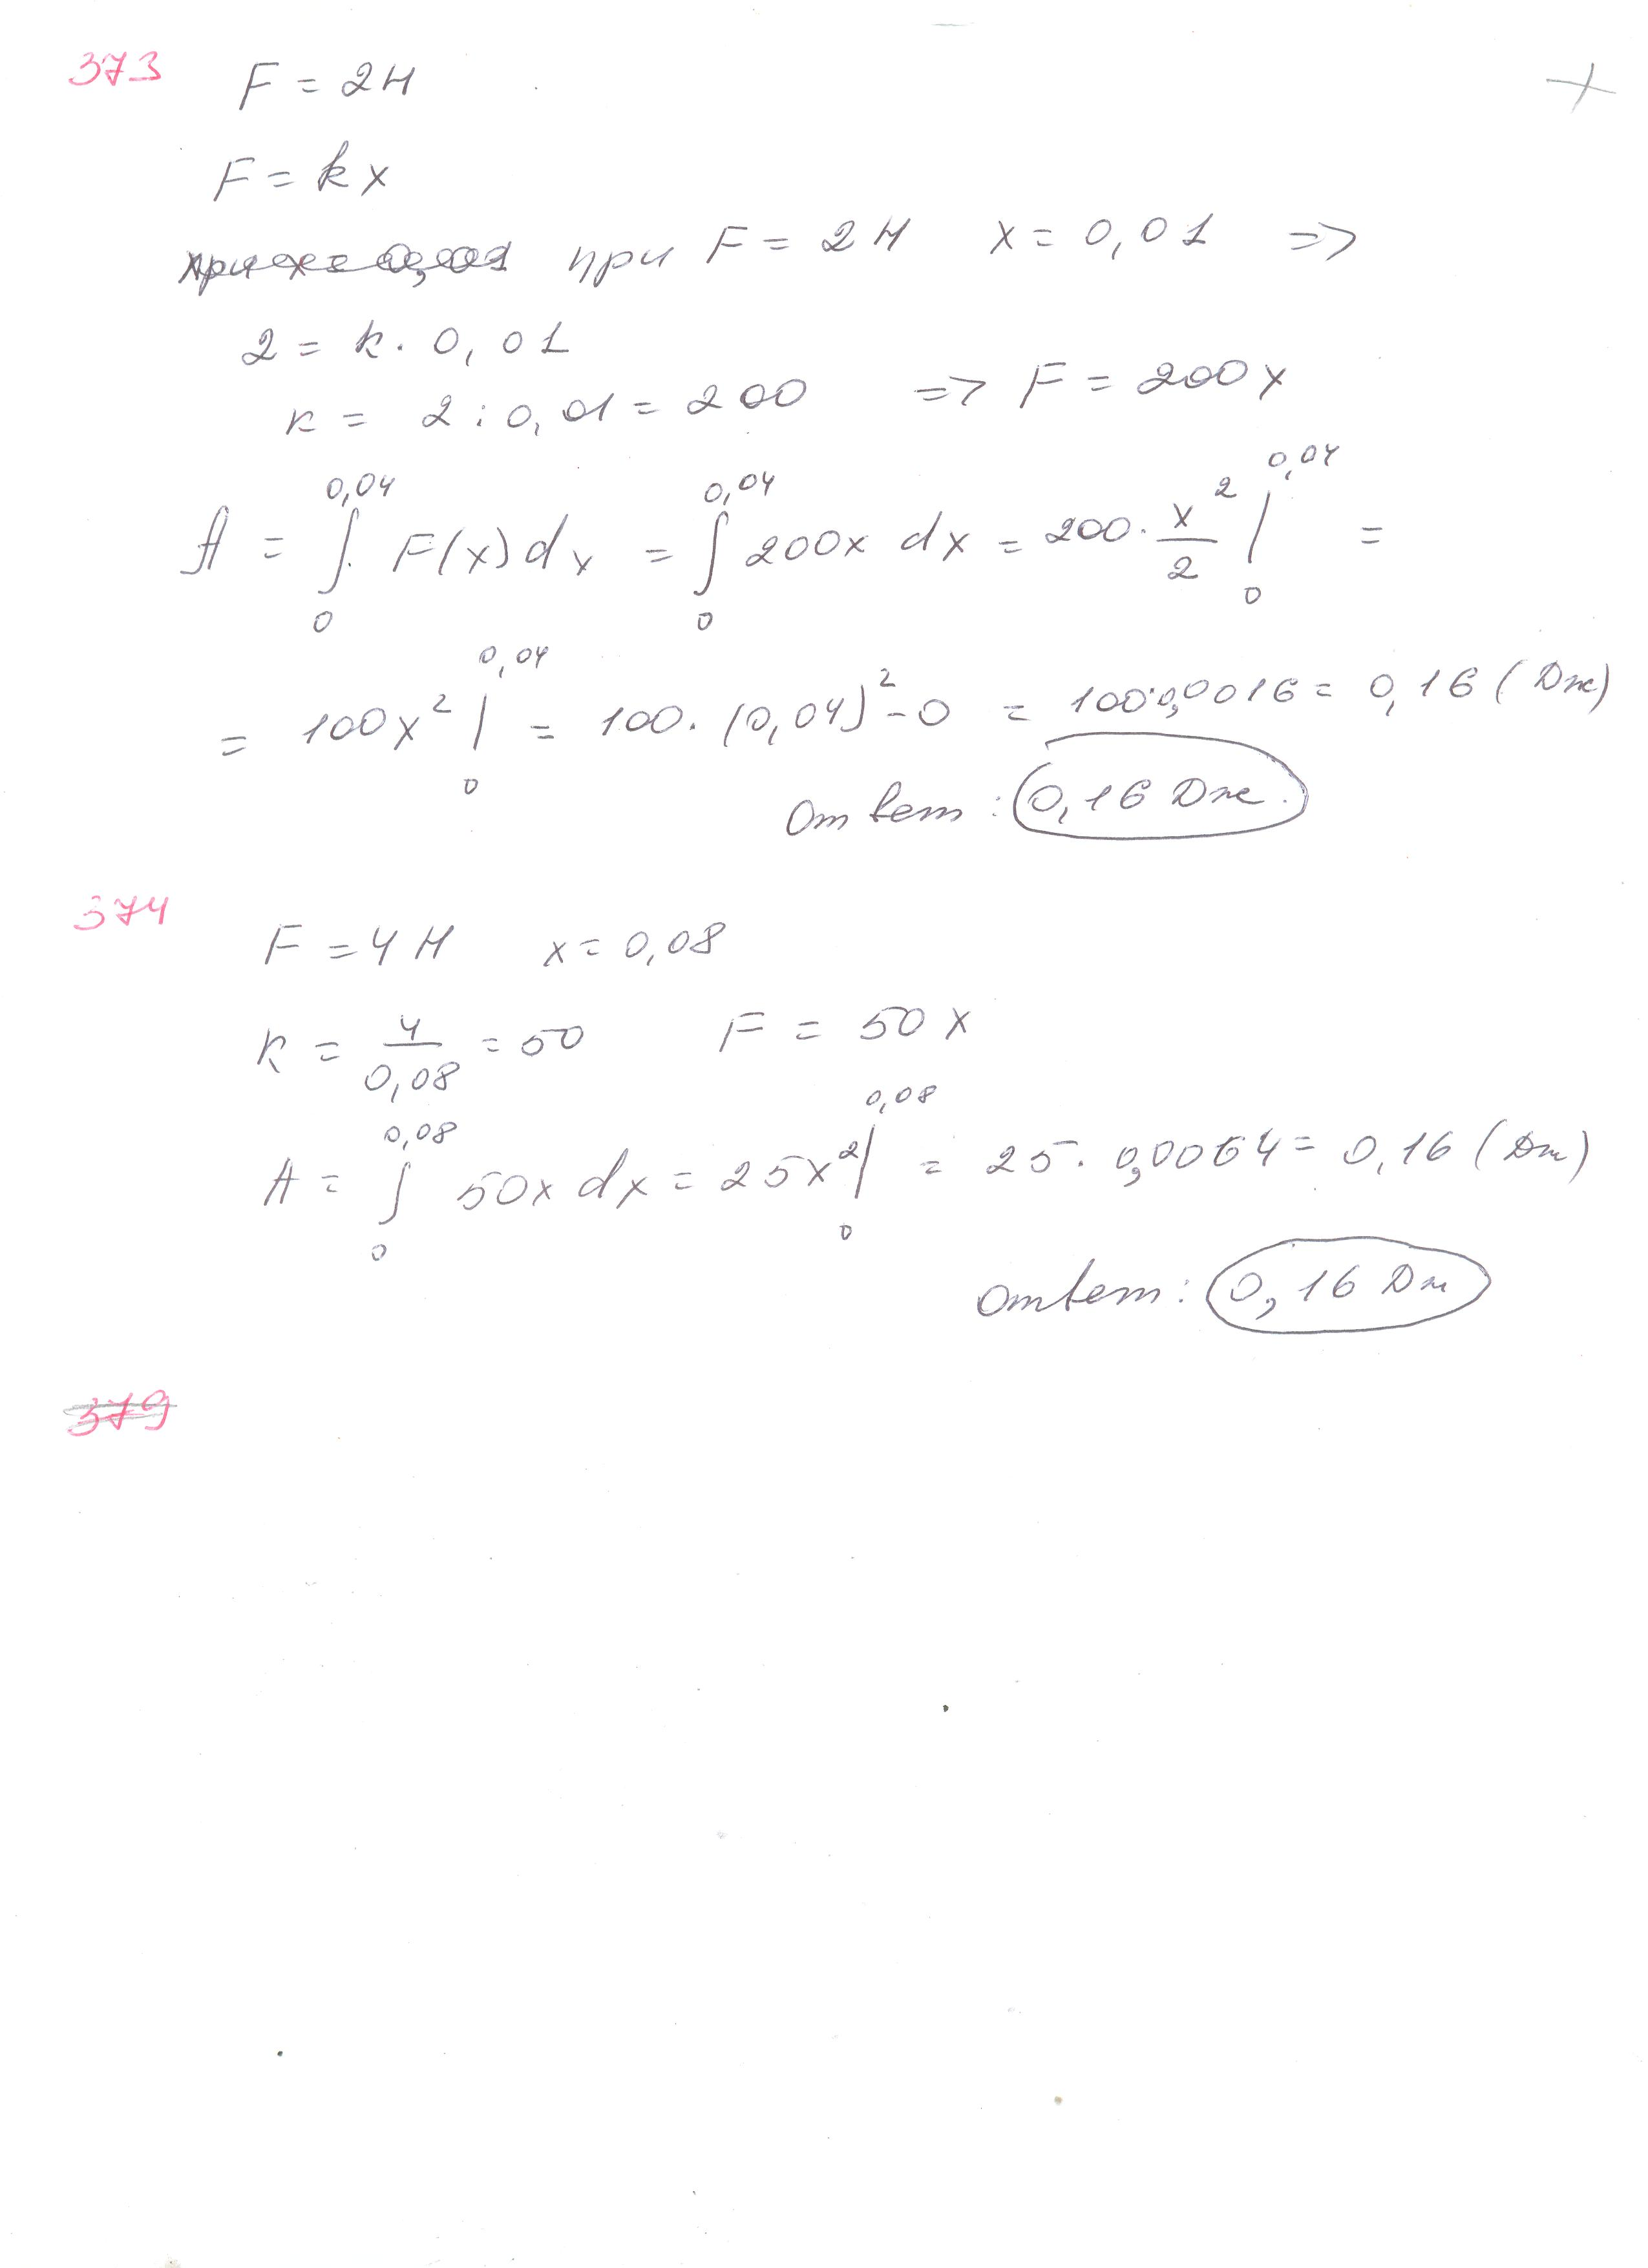 373 F = 2Н +
F = kx
при F = 2Н x = 0,01 =>
2 = k · 0,01
k = 2 : 0,01 = 200 => F = 200x
A = ∫₀^0,04 F(x)dx = ∫₀^0,04 200x dx = 200 · x²/2 |₀^0,04 =
= 100x² |₀^0,04 = 100 · (0,04)² - 0 = 100·0,0016 = 0,16 (Дж)
Ответ: 0,16 Дж.
374
F = 4Н x = 0,08
k = 4/0,08 = 50 F = 50x
A = ∫₀^0,08 50x dx = 25x² |₀^0,08 = 25 · 0,0064 = 0,16 (Дж)
Ответ: 0,16 Дж
379